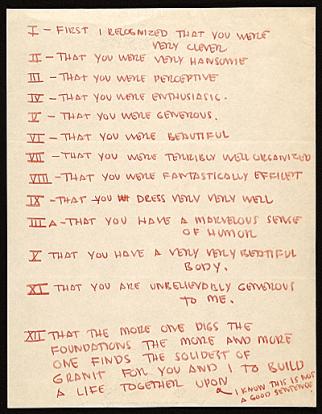 I - FIRST I RECOGNIZED THAT YOU WERE
VERY CLEVER
II - THAT YOU WERE VERY HANSOME
III - THAT YOU WERE PERCEPTIVE
IV - THAT YOU WERE ENTHUSIASIC.
V - THAT YOU WERE GENEROUS.
VI - THAT YOU WERE BEAUTIFUL
VII - THAT YOU WERE TERRIBLY WELL ORGANIZED
VIII - THAT YOU WERE FANTASTICALLY EFFICENT
IX - THAT YOU DRESS VERY VERY WELL
IIIA - THAT YOU HAVE A MARVELOUS SENSE
OF HUMOR
X THAT YOU HAVE A VERY VERY BEATIFUL
BODY.
XI THAT YOU ARE UNBELIEVABLY GENEROUS
TO ME.
XII THAT THE MORE ONE DIGS THE
FOUNDATIONS THE MORE AND MORE
ONE FINDS THE SOLIDEST OF
GRANIT FOR YOU AND I TO BUILD
A LIFE TOGETHER UPON
I KNOW THIS IS NOT
A GOOD SENTENCE